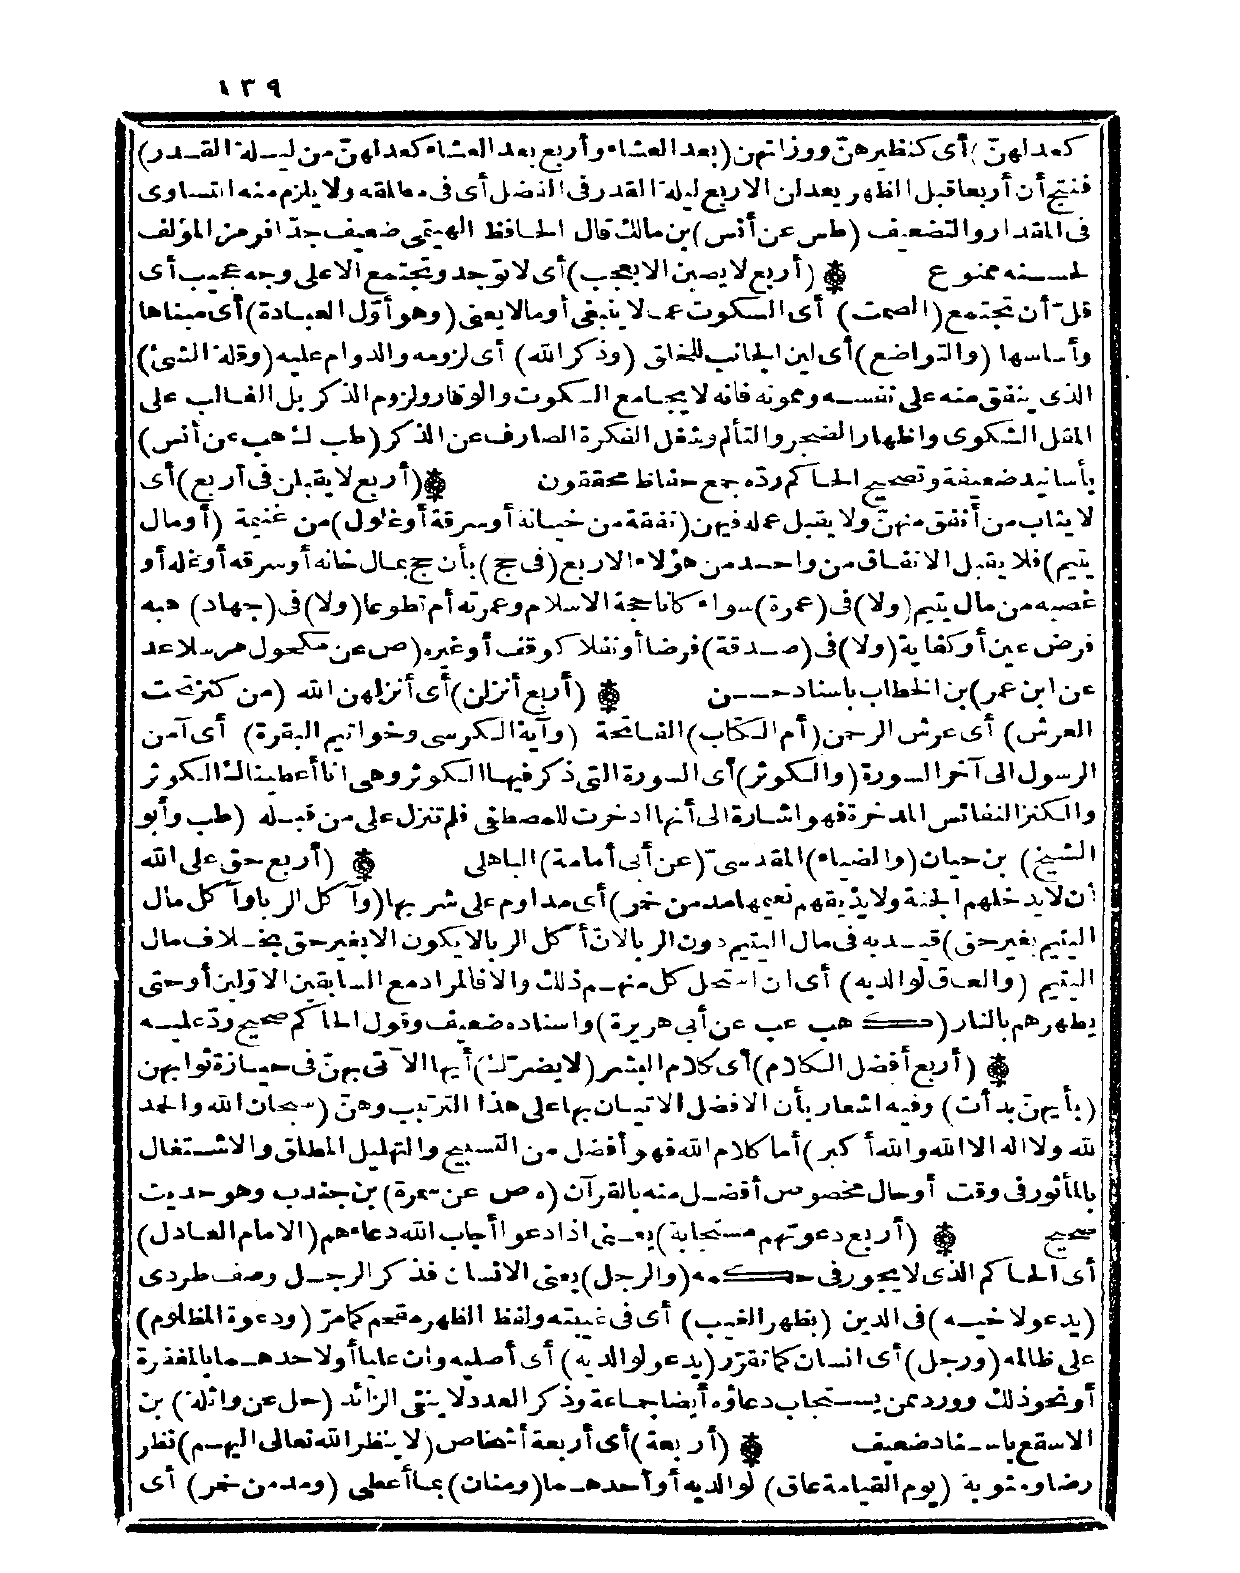 ١٣٩
كعدلهنّ) أى كنظيرهنّ ووزانهن (بعد العشاء وأربع بعد العشاء كعدلهنّ من ليلة القدر)
فنتج أن أربعا قبل الظهر يعدلن الاربع ليلة القدر فى الفضل أى فى مطلقه ولا يلزم منه التساوى
فى المقدار والتضعيف (طس عن أنس) بن مالك قال الحافظ الهيتمى ضعيف جدّا فرمز المؤلف
لحسنه ممنوع ۞ (أربع لا يصبن الا بعجب) أى لا توجد وتجتمع الا على وجه عجيب أى
قلّ أن تجتمع (الصمت) أى السكوت عما لا ينبغى أو مالا يعنى (وهو أوّل العبادة) أى مبناها
وأساسها (والتواضع) أى لين الجانب للخلق (وذكر الله) أى لزومه والدوام عليه (وقلة الشئ)
الذى ينفق منه على نفسه وممونه فانه لا يجامع السكوت والوقار ولزوم الذكر بل الغالب على
المقل الشكوى واظهار الضجر والتألم وشغل الفكرة الصارف عن الذكر (طب ك هب عن أنس)
بأسانيد ضعيفة وتصحيح الحاكم ردّه جمع حفاظ محققون ۞ (أربع لا يقبلن فى أربع) أى
لا يثاب من أنفق منهنّ ولا يقبل عمله فيهن (نفقة من خيانة أو سرقة أو غلول) من غنيمة (أو مال
يتيم) فلا يقبل الانفاق من واحد من هؤلاء الاربع (فى حج) بأن حج بمال خانه أو سرقه أو غله أو
غصبه من مال يتيم (ولا) فى (عمرة) سواء كانا حجة الاسلام وعمرته أم تطوعا (ولا) فى (جهاد) هبه
فرض عين أو كفاية (ولا) فى (صدقة) فرضا أو نفلا كوقف أو غيره (ص عن مكحول مرسلا عد
عن ابن عمر) بن الخطاب باسناد حسن ۞ (أربع أنزلن) أى أنزلهن الله (من كنز تحت
العرش) أى عرش الرحمن (أم الكتاب) الفاتحة (وآية الكرسى وخواتيم البقرة) أى آمن
الرسول الى آخر السورة (والكوثر) أى السورة التى ذكر فيها الكوثر وهى انا أعطيناك الكوثر
والكنز النفائس المدخرة فهو اشارة الى أنها ادخرت للمصطفى فلم تنزل على من قبله (طب وأبو
الشيخ) بن حيان (والضياء) المقدسىّ (عن أبى أمامة) الباهلى ۞ (أربع حق على الله
أن لا يدخلهم الجنة ولا يذيقهم نعيمها مدمن خمر) أى مداوم على شربها (وآكل الربا وآكل مال
اليتيم بغير حق) قيد به فى مال اليتيم دون الربا لانّ أكل الربا لا يكون الا بغير حق بخلاف مال
اليتيم (والعاق لوالديه) أى ان استحل كل منهم ذلك والا فالمراد مع السابقين الاوّلين أو حتى
يطهرهم بالنار (ك هب عن أبى هريرة) واسناده ضعيف وقول الحاكم صحيح ردّ عليه
۞ (أربع أفضل الكلام) أى كلام البشر (لا يضرّك) أيها الآتى بهنّ فى حيازة ثوابهن
(بأيهنّ بدأت) وفيه اشعار بأن الافضل الاتيان بها على هذا الترتيب وهنّ (سبحان الله والحمد
لله ولا اله الا الله والله أكبر) أما كلام الله فهو أفضل من التسبيح والتهليل المطلق والاشتغال
بالمأثور فى وقت أو حال مخصوص أفضل منه بالقرآن (ه ص عن سمرة) بن جندب وهو حديث
صحيح ۞ (أربع دعوتهم مستجابة) يعنى اذا دعوا أجاب الله دعاءهم (الامام العادل)
أى الحاكم الذى لا يجور فى حكمه (والرجل) يعنى الانسان فذكر الرجل وصف طردى
(يدعو لاخيه) فى الدين (بظهر الغيب) أى فى غيبته ولفظ الظهر مقحم كما مرّ (ودعوة المظلوم)
على ظالمه (ورجل) أى انسان كما تقرّر (يدعو لوالديه) أى أصليه وان عليا أو لاحدهما بالمغفرة
أو نحو ذلك وورد ممن يستجاب دعاؤه أيضا جماعة وذكر العدد لا ينفى الزائد (حل عن واثلة) بن
الاسقع باسناد ضعيف ۞ (أربعة) أى أربعة أشخاص (لا ينظر الله تعالى اليهم) نظر
رضا ومثوبة (يوم القيامة عاق) لوالديه أو أحدهما (ومنان) بما أعطى (ومدمن خمر) أى